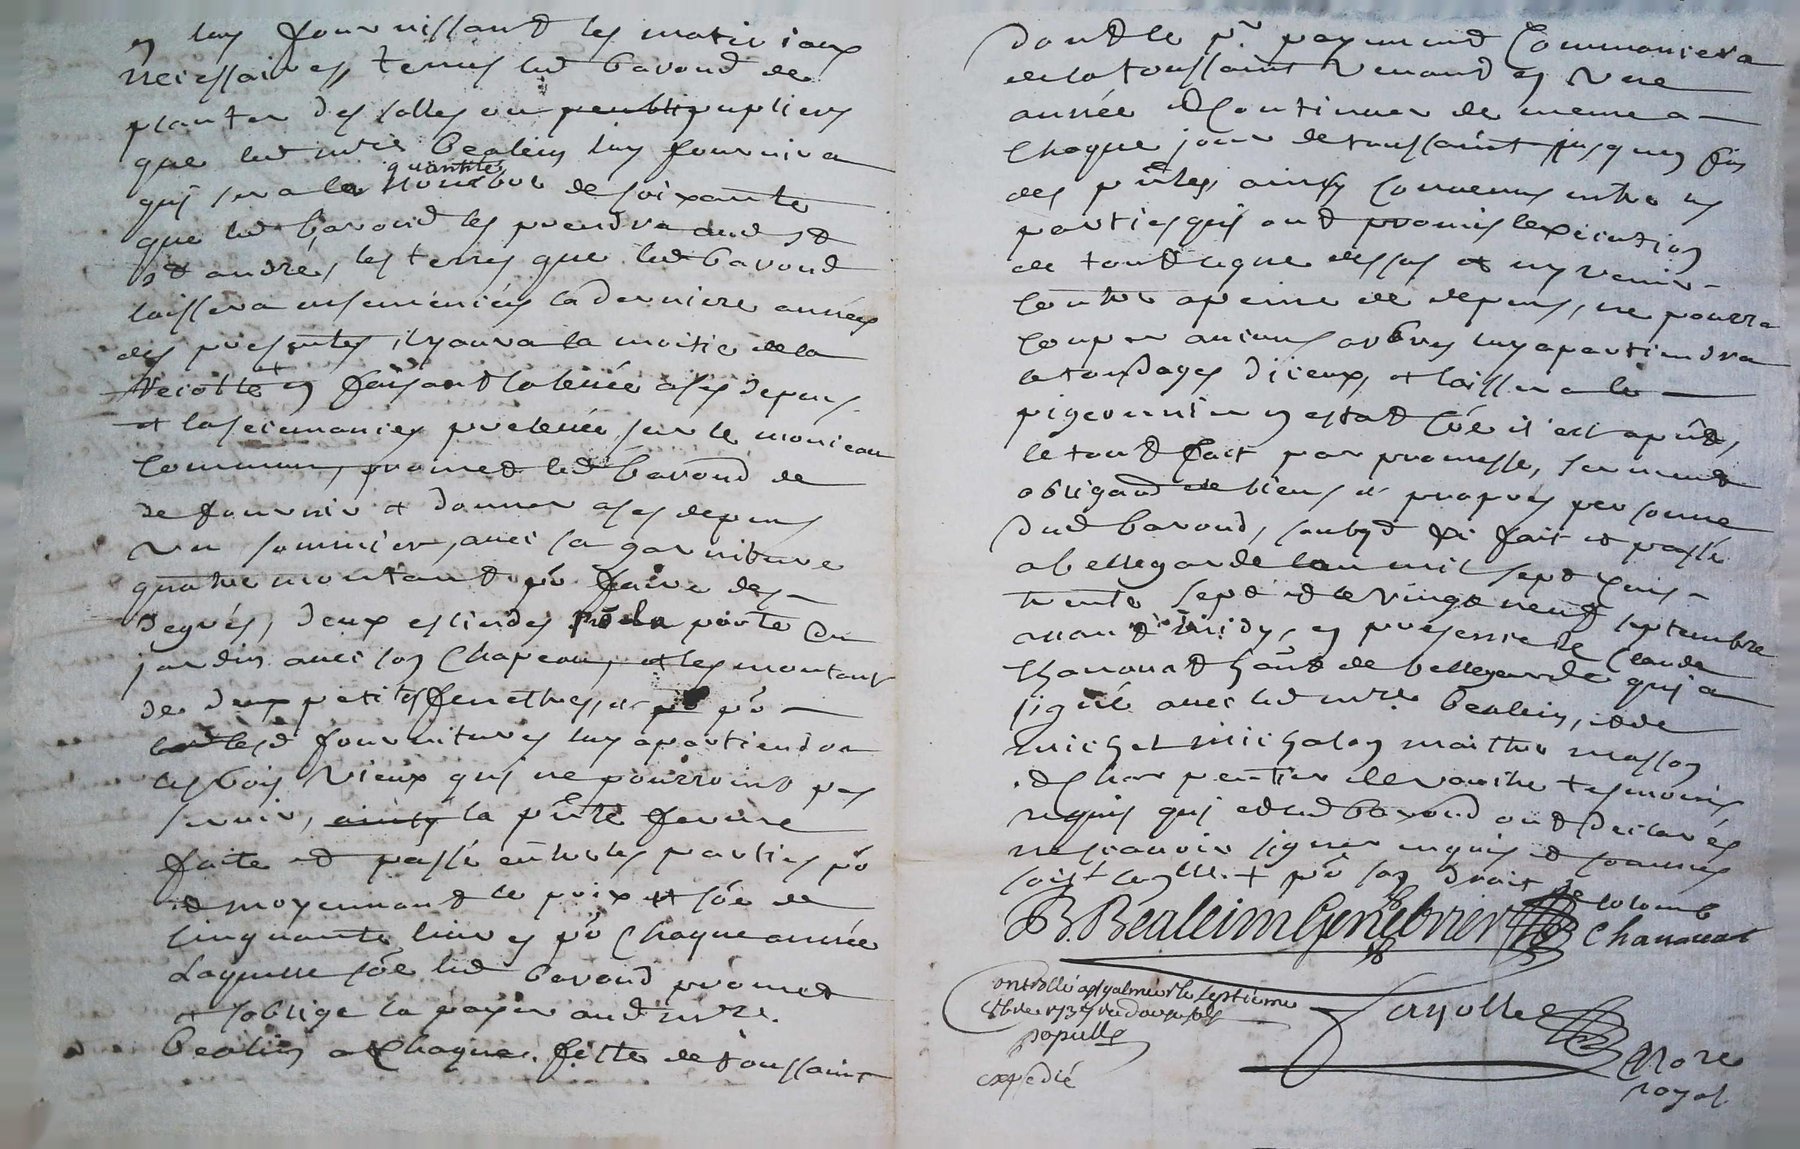 en luy fournissant les materiaux
necessaires, tenus led bavond de
planter des solles ou peupliers
que led mre Bealein luy fournira
quantité
qui sera le de soixante
que led bavond les prendra aud st
st andré, les terres que led bavond
laissera ensemencées la derniere année
des presentes, il y aura la moitié de la
Recolte en faisant la levée a ses depens
et la seimance prelevée sur le monceau
Commun, promet led bavond de
de fournir et donner a ses depens
un sommier, avec sa garniture
quatre montant po faire des
degrés, deux po la porte du
jardin avec son chapeau, et les montant
de deux petites fenethes, et po
lesd fournitures luy apartiendra
les bois vieux qui ne pourront pas
servir, la pnte ferme
faite et passé entre les parties po
et moyennant le prix et soe de
cinquante livres po chaque année
Laquelle soe led bavond promet
et s'oblige la payer aud mre
Bealein a chaque feste de toussaint
dont le pr payement Commencera
de la toussaint venant en une
année et Continuer de meme a
Chaque jour de toussaint jusques fin
des pntes, ainsy convenus entre les
parties qui ont promis l'execution
de tout ce que dessus et ny venir
contre a peine de depens, ne pourra
Couper aucuns arbres luy apartiendra
le tondages d'iceux, et laissera le
pigeonnier en estat coe il est apnt,
le tout fait par promesse, serment
obligaon de biens et propres personne
dud bavond, soubzt fait et passé
a bellegarde l'an mil sept cens
trente sept et le vingt neuf septembre
avant midy, en presence de Claude
Chanavat de bellegarde qui a
signé avec led mre Bealein, et de
michel michalon maithre masson
et charpentier tesmoins
requis qui et led bavond ont declarés
ne scavoir signer enquis et sommés
soist Colomb
B. Bealeim Genebrier Chanavat
Controllé a st galmier le septieme
8bre 1737
papulle
expedié
Nore
royal